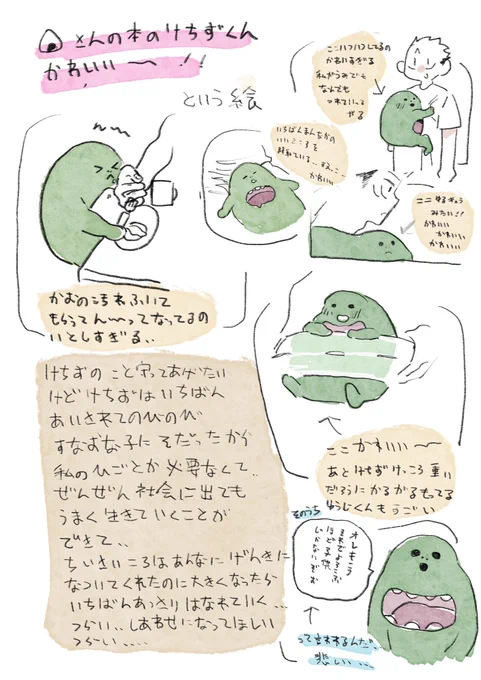 さんの本のけちずくん
かわいい〜!!
という絵
ここハフハフしてるの
かわいすぎる
私がうみでも
なんでも
つれていって
やる
いちばんまんなかの
いいところを
かわいい
ここ
みたいに!
かわいい
かわいい
かわいい
かおの汚れふいて
もらってん〜ってなってるの
いとしすぎる..
ここかわいい〜
あとけちずけっこう重い
だろうにかるがるもってる
ゆうじくんもすごい
けちずのこと守ってあげたい
けどけちずはいちばん
あいされてのびのび
すなおな子にそだったから
私のひごとか必要なくて..
ぜんぜん社会に出ても
うまく生きていくことが
できて..
ちいさいころはあんなにげんきに
なついてくれたのに大きくなったら
いちばんあっさりはなれていく...
つらい..しあわせになってほしい
つらい....
そのうち
オレもこう
ほど子供
じゃないぞお
って言われるんだ..
悲しい...